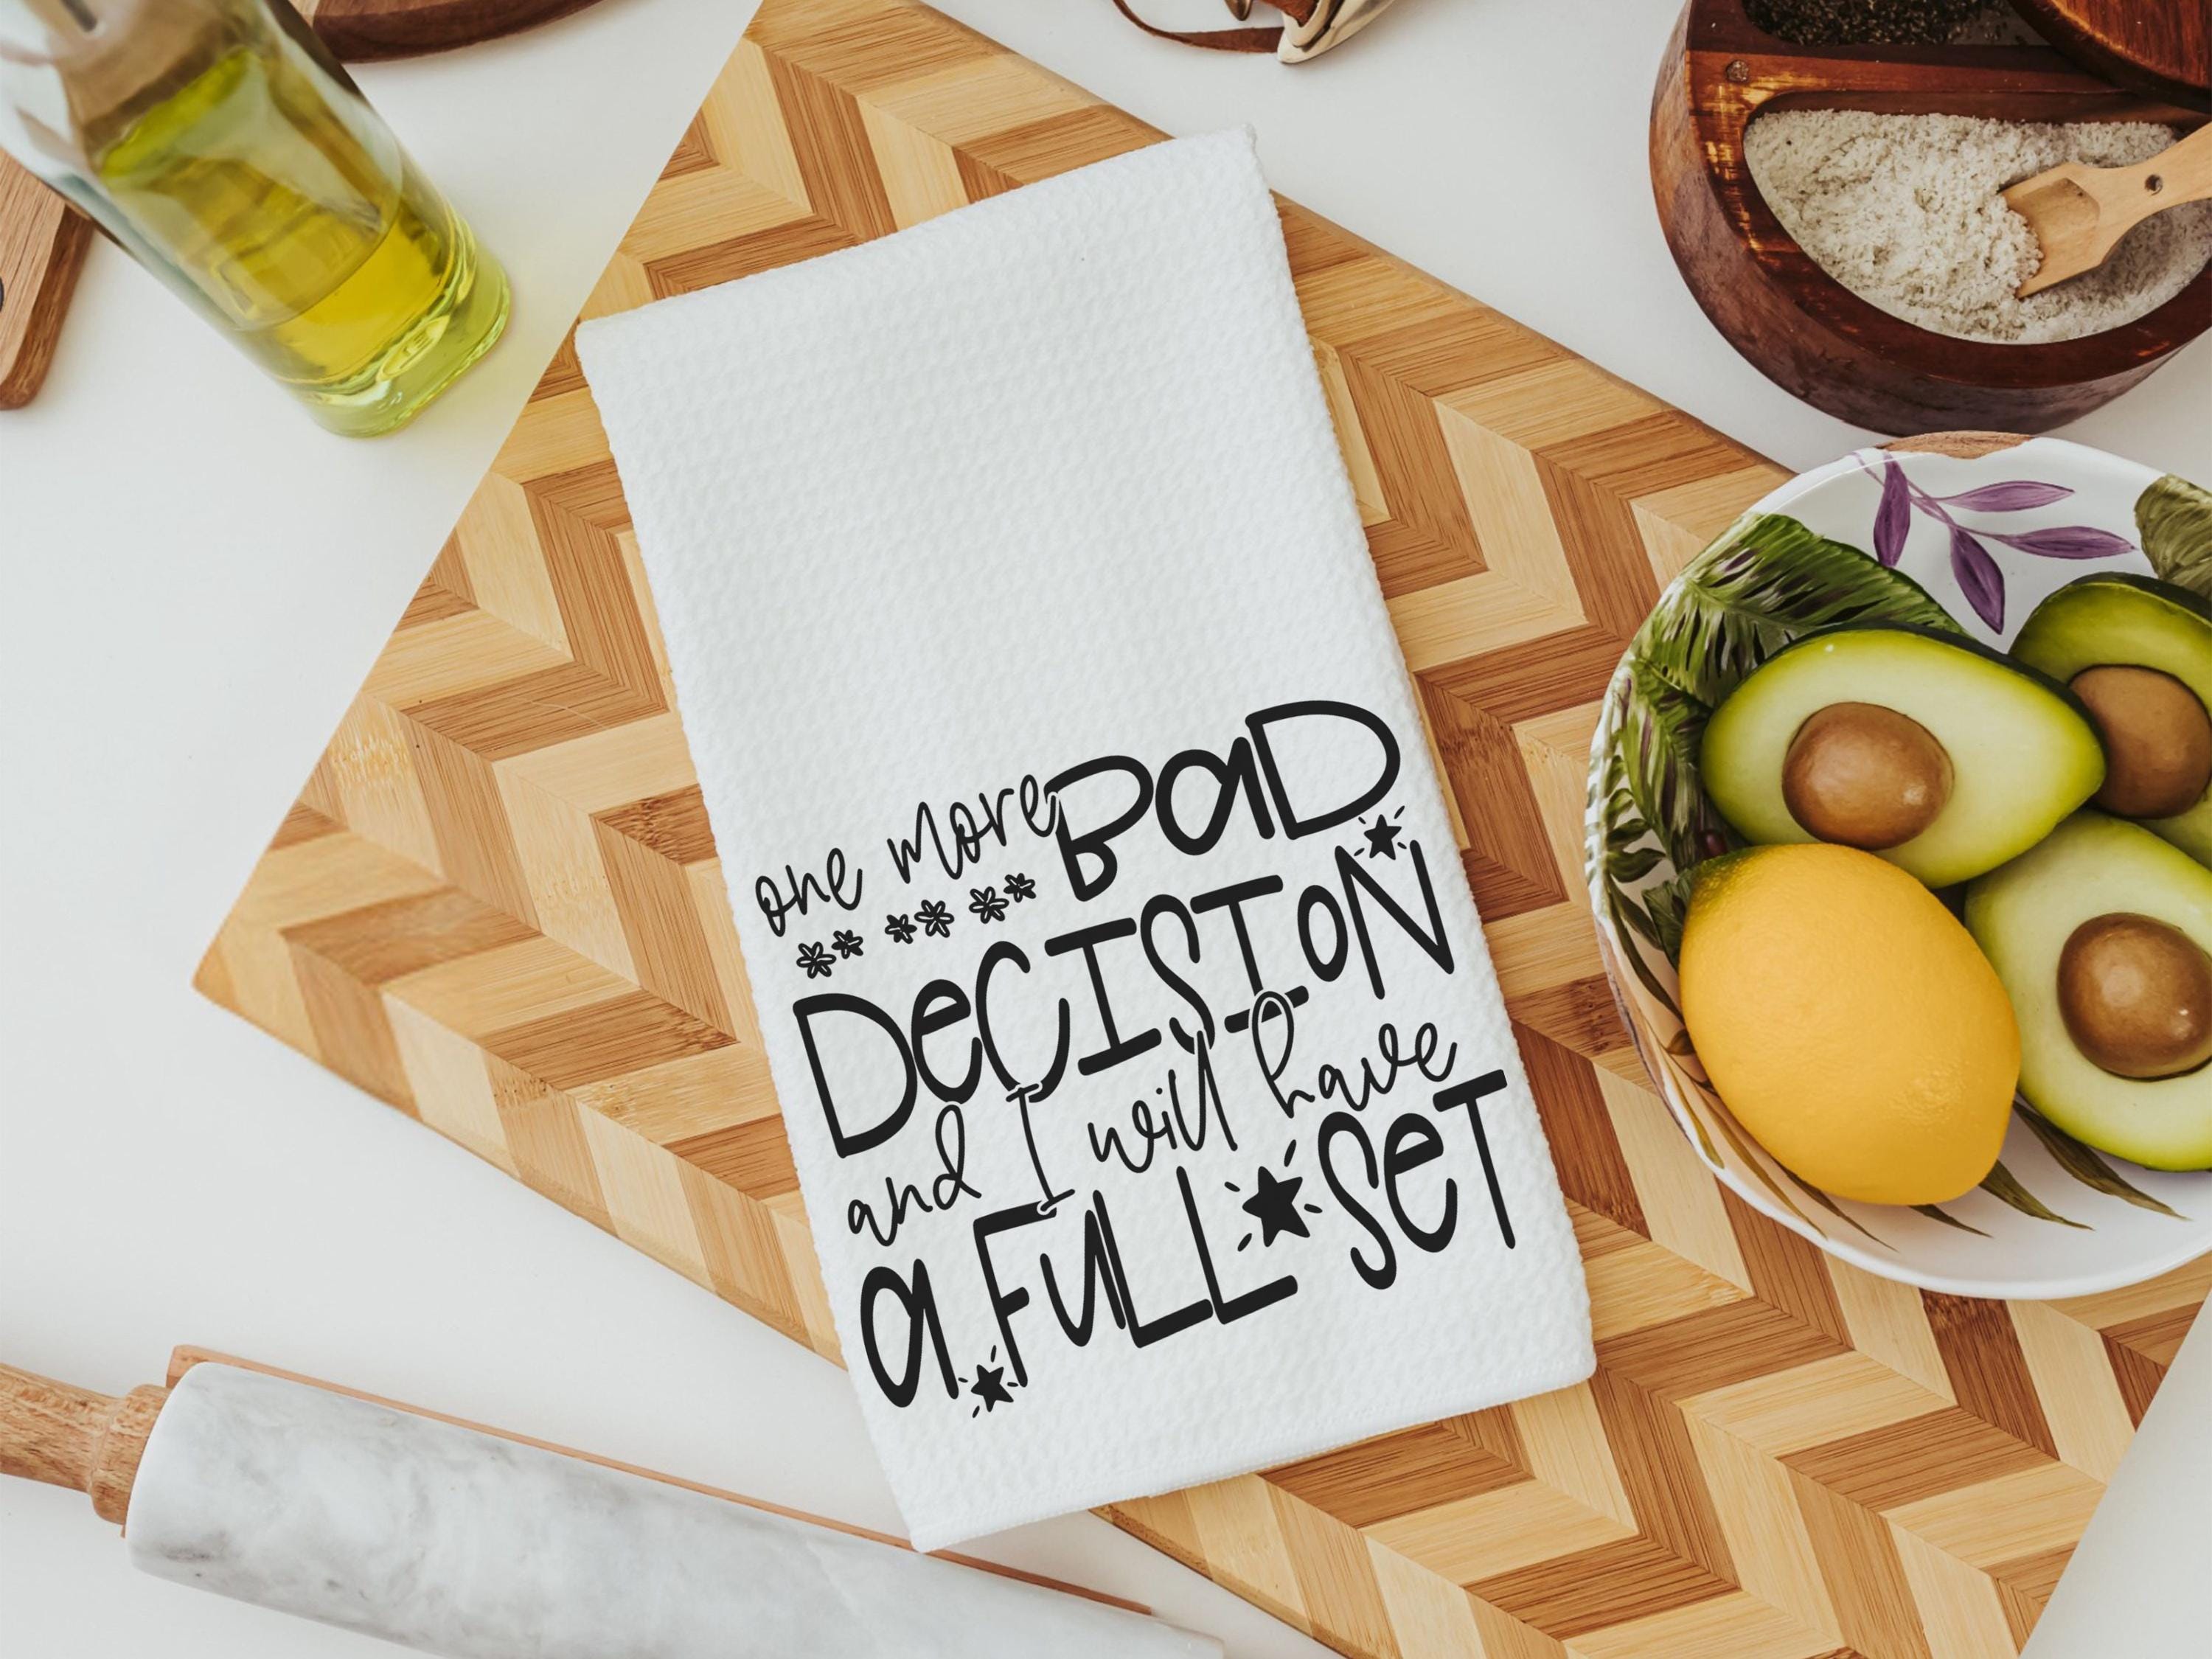 one more BaD
DeCISIoN
and I will have
a FuLL SeT